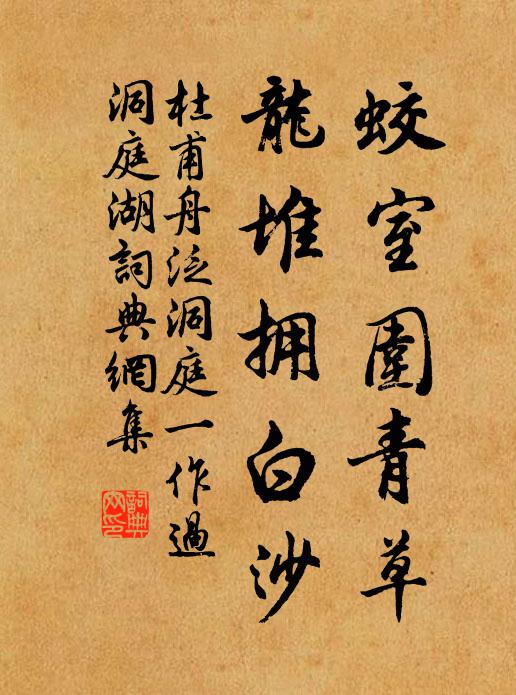 蛟室圍青草
龍堆拥白沙
杜甫舟泛洞庭一作過
洞庭湖詞典網集
詞典
网印